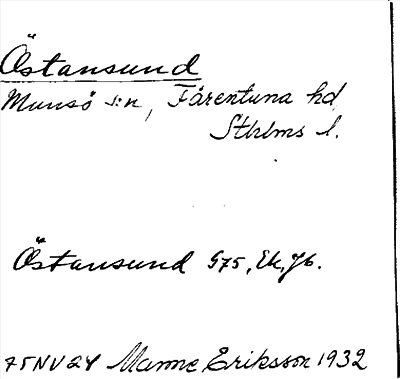 Östansund
Munsö s:n, Färentuna hd,
Sthlms l.
Östansund 975, Ek, Jb.
75NV24 Manne Eriksson 1932